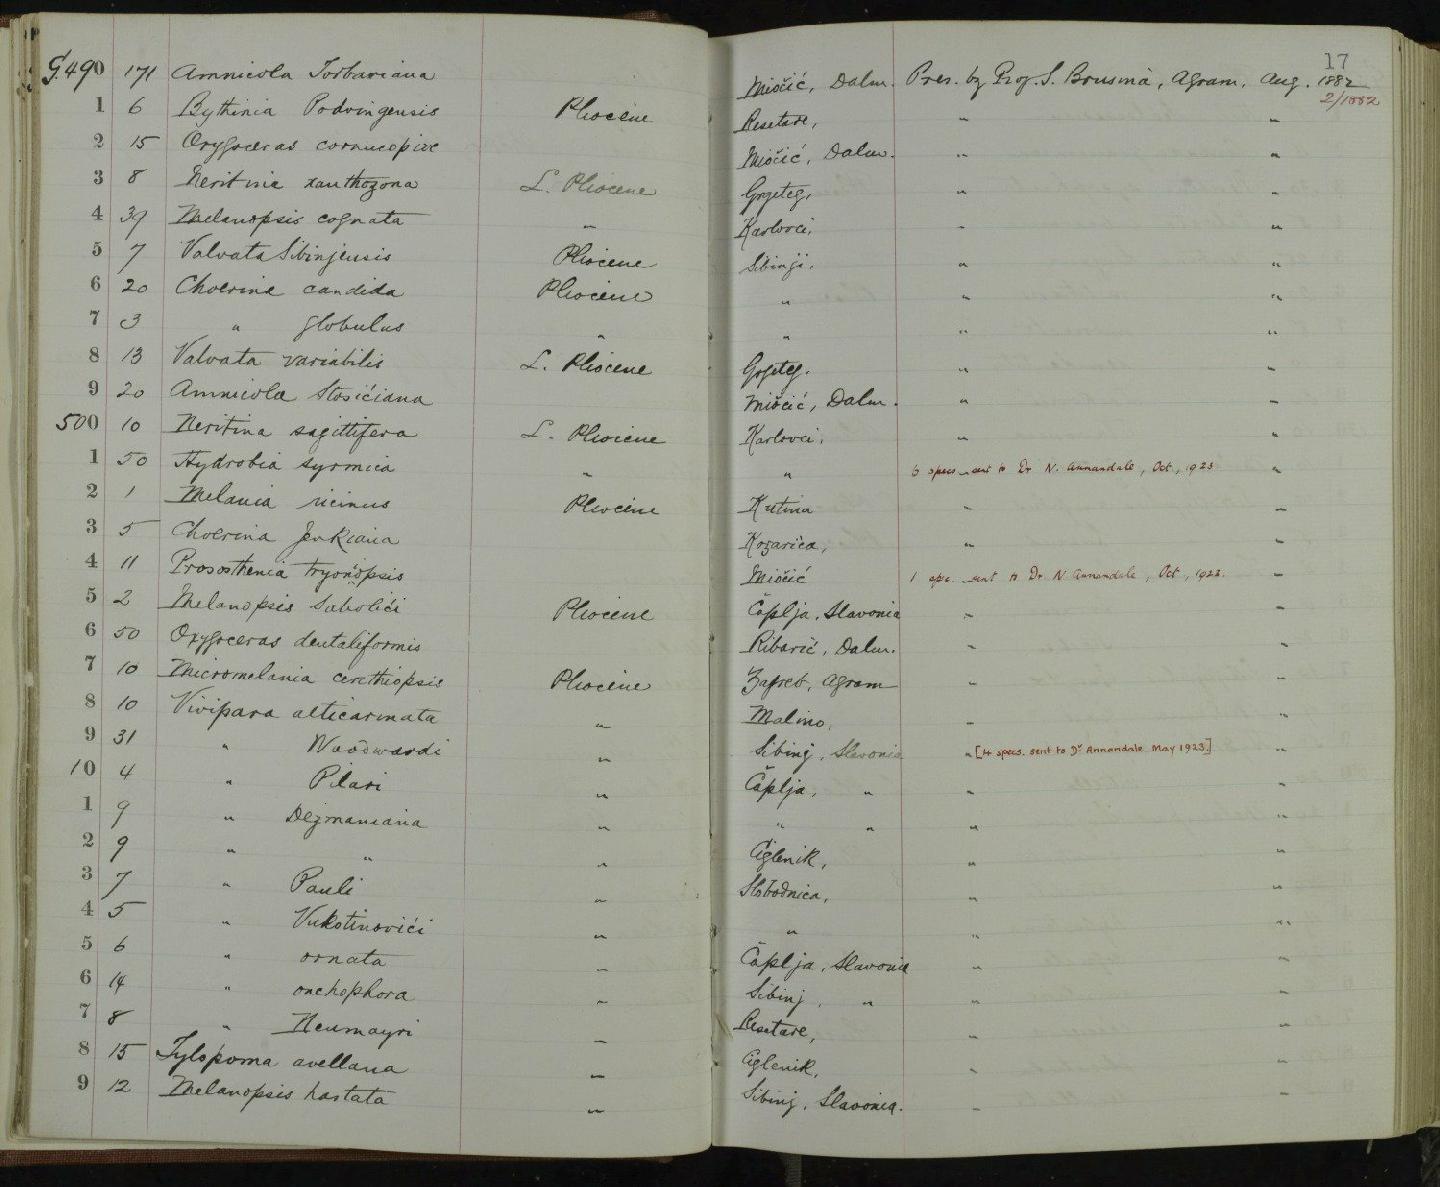 17
G.490 171 Amnicola Torbariana Miočić, Dalm. Pres. by Prof. S. Brusina, Agram, Aug. 1882
2/1882
1 6 Bythinia Podvingensis Pliocene Resetare, " "
2 15 Orygoceras cornucopiae Miočić, Dalm. " "
3 8 Neritina xanthozona L. Pliocene Grgeteg, " "
4 39 Melanopsis cognata " Karlovci, " "
5 7 Valvata Sibinjensis Pliocene Sibinji. " "
6 20 Choerina candida Pliocene " " "
7 3 " globulus " " " "
8 13 Valvata variabilis L. Pliocene Grgeteg. " "
9 20 Amnicola Stosićiana Miočić, Dalm. " "
500 10 Neritina sagittifera L. Pliocene Karlovci, " "
1 50 Hydrobia syrmica " " 6 specs. sent to Dr N. Annandale, Oct, 1923 "
2 1 Melania ricinus Pliocene Kutina " "
3 5 Choerina Jenkiana Kozarica, " "
4 11 Prososthenia tryoniopsis Miočić 1 spec. sent to Dr. N. Annandale, Oct, 1923. "
5 2 Melanopsis Sabolići Pliocene Čaplja, Slavonia " "
6 50 Orygoceras dentaliformis Ribarić, Dalm. " "
7 10 Micromelania cerithiopsis Pliocene Zagreb, Agram " "
8 10 Vivipara alticarinata " Malino, " "
9 31 " Woodwardi " Sibinj, Slavonia " [4 specs. sent to Dr Annandale May 1923.] "
10 4 " Pilari " Čaplja, " " "
1 9 " Dezmaniana " " " " "
2 9 " " " Ciglenik, " "
3 7 " Pauli " Slobodnica, " "
4 5 " Vukotinovići " " " "
5 6 " ornata " Čaplja, Slavonia " "
6 14 " onchophora " Sibinj, " " "
7 8 " Neumayri " Resetare, " "
8 15 Tylopoma avellana " Ciglenik, " "
9 12 Melanopsis hastata " Sibinj, Slavonia. " "